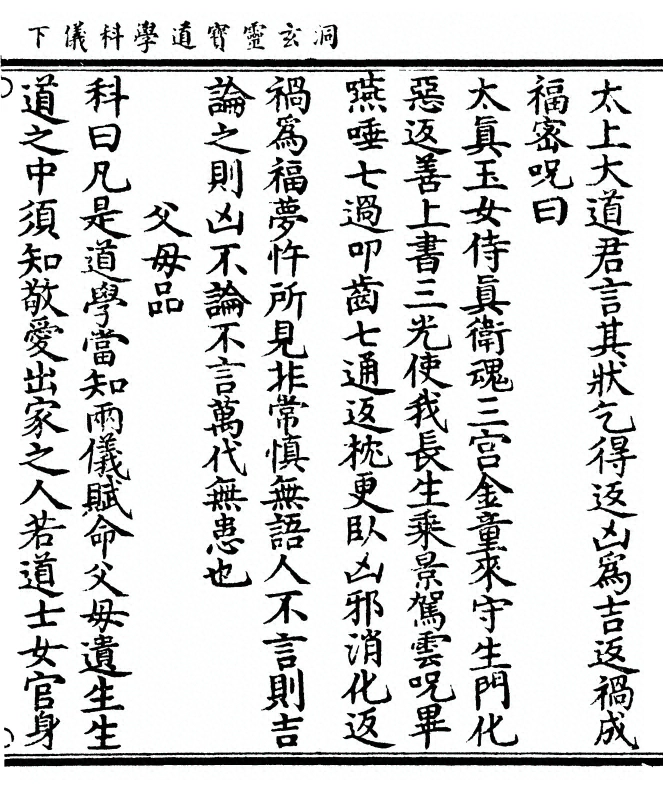 洞玄靈寶道學科儀下
太上大道君言其狀乞得返凶爲吉返禍成
福密呪曰
太眞玉女侍眞衛魂三宮金童來守生門化
惡返善上書三光使我長生乘景駕雲呪畢
嚥唾七過叩齒七通返枕更臥凶邪消化返
禍爲福夢忤所見非常慎無語人不言則吉
論之則凶不論不言萬代無患也
父母品
科曰凡是道學當知兩儀賦命父母遺生生
道之中須知敬愛出家之人若道士女官身